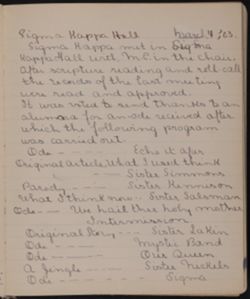 Sigma Kappa Hall March 4, '03.
Sigma Kappa met in Sigma
Kappa Hall with M.C. in the chair.
After scripture reading and roll call
the records of the last meeting
were read and approved.
It was voted to send thanks to an
alumna for an ode received after
which the following program
was carried out.
Ode - - - - Echo it afar
Original article What I used think
- - - - Sister Simmons
Parody - - - - Sister Kennison
What I think now - - Sister Salsman
Ode - - - We hail thee holy mother
Intermission
Original Story - - - Sister Lakin
Ode - - - - Mystic Band
Ode - - - - Our Queen
A Jingle - - - - Sister Nickels
Ode - - - - Sigma